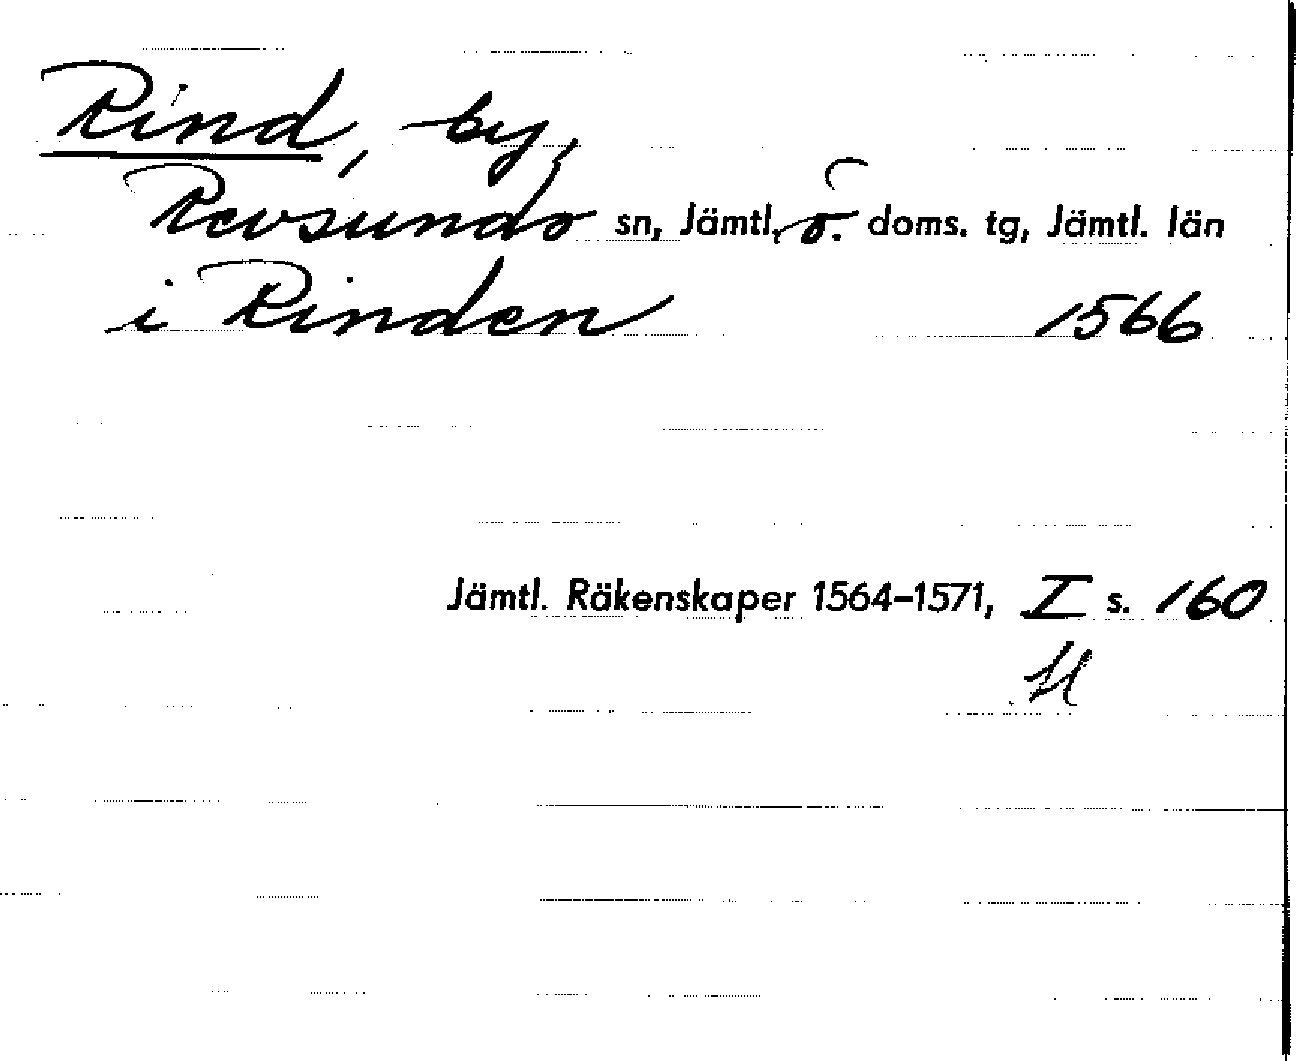 Rind, by,
Revsunds sn, Jämtl. ö. doms. tg, Jämtl. län
i Rinden 1566
Jämtl. Räkenskaper 1564-1571, I s. 160